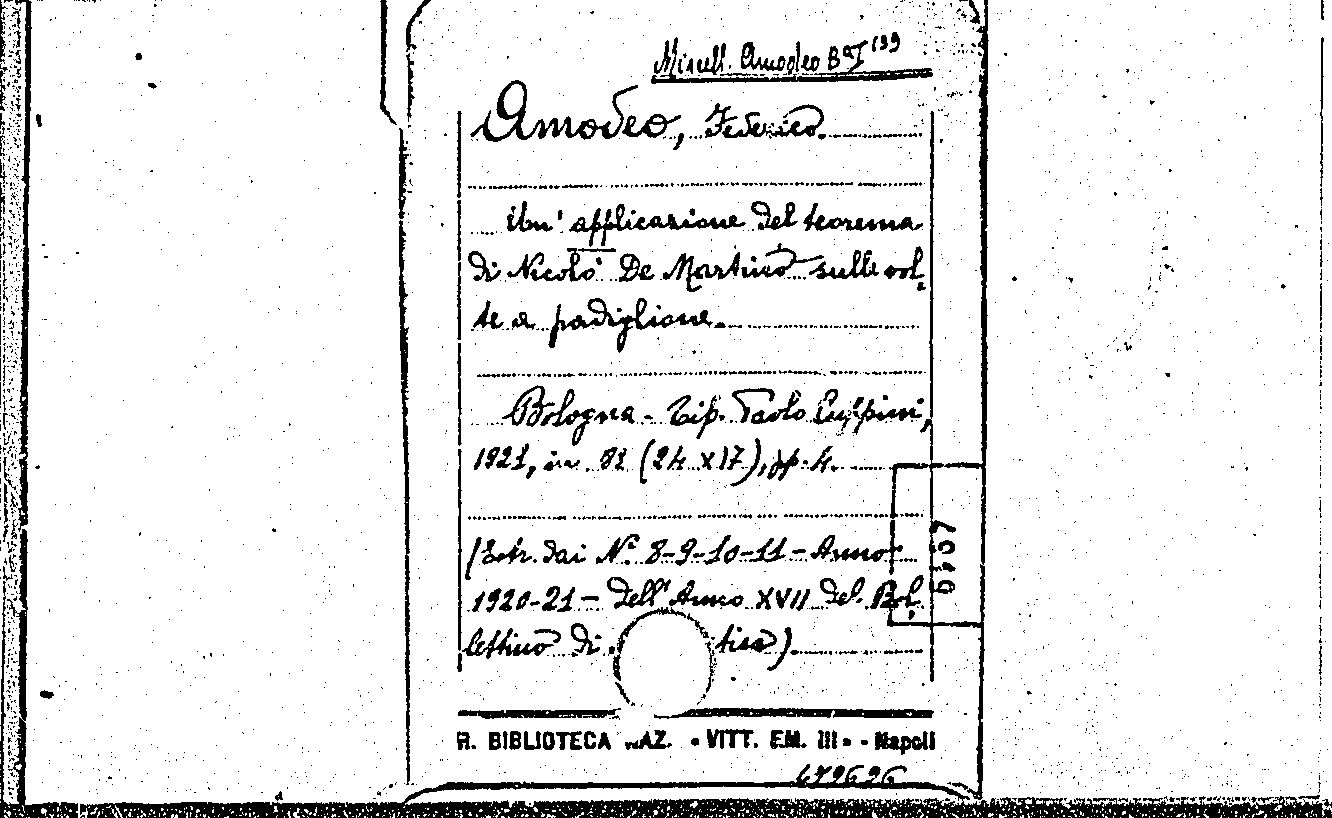 Miscell. Amodeo Bª I 139
Amodeo, Federico.
Un' applicazione del teorema
di Nicolò De Martino sulle vol-
te a padiglione.
Bologna - Tip. Paolo Cuppini,
1921, in 8º (24 x 17), pp. 4.
(Estr. dai N.i 8-9-10-11 - Anno
1920-21 - dell' Anno XVII del Bol-
lettino di tica).
R. BIBLIOTECA NAZ. • VITT. EM. III • - Napoli
479696